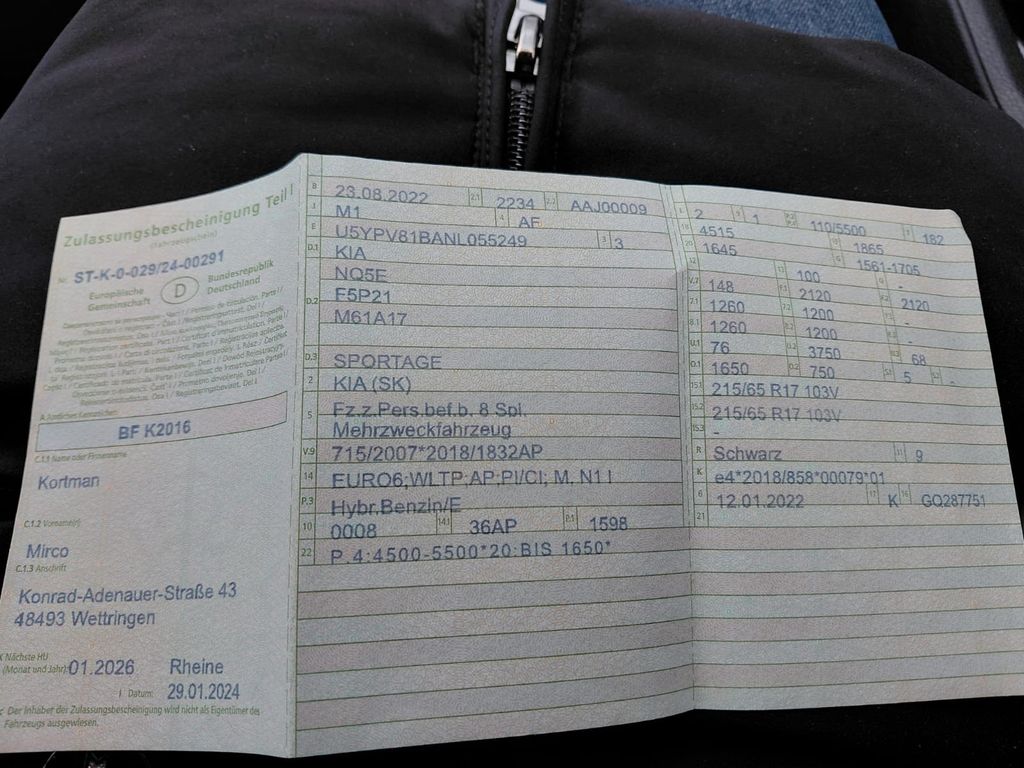 Zulassungsbescheinigung Teil I
(Fahrzeugschein)
Nr. ST-K-0-029/24-00291
Europäische Gemeinschaft
D
Bundesrepublik Deutschland
A Amtliches Kennzeichen
BF K2016
C.1.1 Name oder Firmenname
Kortman
C.1.2 Vorname(n)
Mirco
C.1.3 Anschrift
Konrad-Adenauer-Straße 43
48493 Wettringen
Nächste HU
(Monat und Jahr) 01.2026 Rheine
I Datum: 29.01.2024
Der Inhaber der Zulassungsbescheinigung wird nicht als Eigentümer des
Fahrzeugs ausgewiesen.
B 23.08.2022 2.1 2234 2.2 AAJ00009
J M1 4 AF
E U5YPV81BANL055249 3 3
D.1 KIA
NQ5E
D.2 F5P21
M61A17
D.3 SPORTAGE
2 KIA (SK)
5 Fz.z.Pers.bef.b. 8 Spl.
Mehrzweckfahrzeug
V.9 715/2007*2018/1832AP
14 EURO6;WLTP;AP;PI/CI; M, N1 I
P.3 Hybr.Benzin/E
10 0008 14.1 36AP P.1 1598
22 P.4:4500-5500*20:BIS 1650*
L 2 9 1 P.2 P.4 110/5500 T 182
18 4515 19 1865
20 1645 G 1561-1705
12 - 13 100 Q -
V.7 148 F.1 2120 F.2 2120
7.1 1260 7.2 1200 7.3 -
8.1 1260 8.2 1200 8.3 -
U.1 76 U.2 3750 U.3 68
O.1 1650 O.2 750 S.1 5 S.2 -
15.1 215/65 R17 103V
15.2 215/65 R17 103V
15.3 -
R Schwarz 11 9
K e4*2018/858*00079*01
6 12.01.2022 17 K 16 GQ287751
21